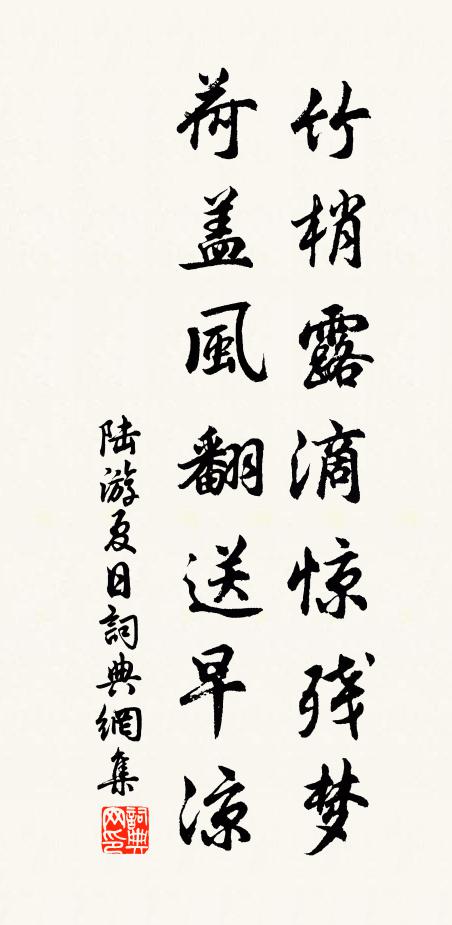 竹梢露滴惊残梦
荷盖風翻送早凉
陆游夏日詞典網集
詞典网印